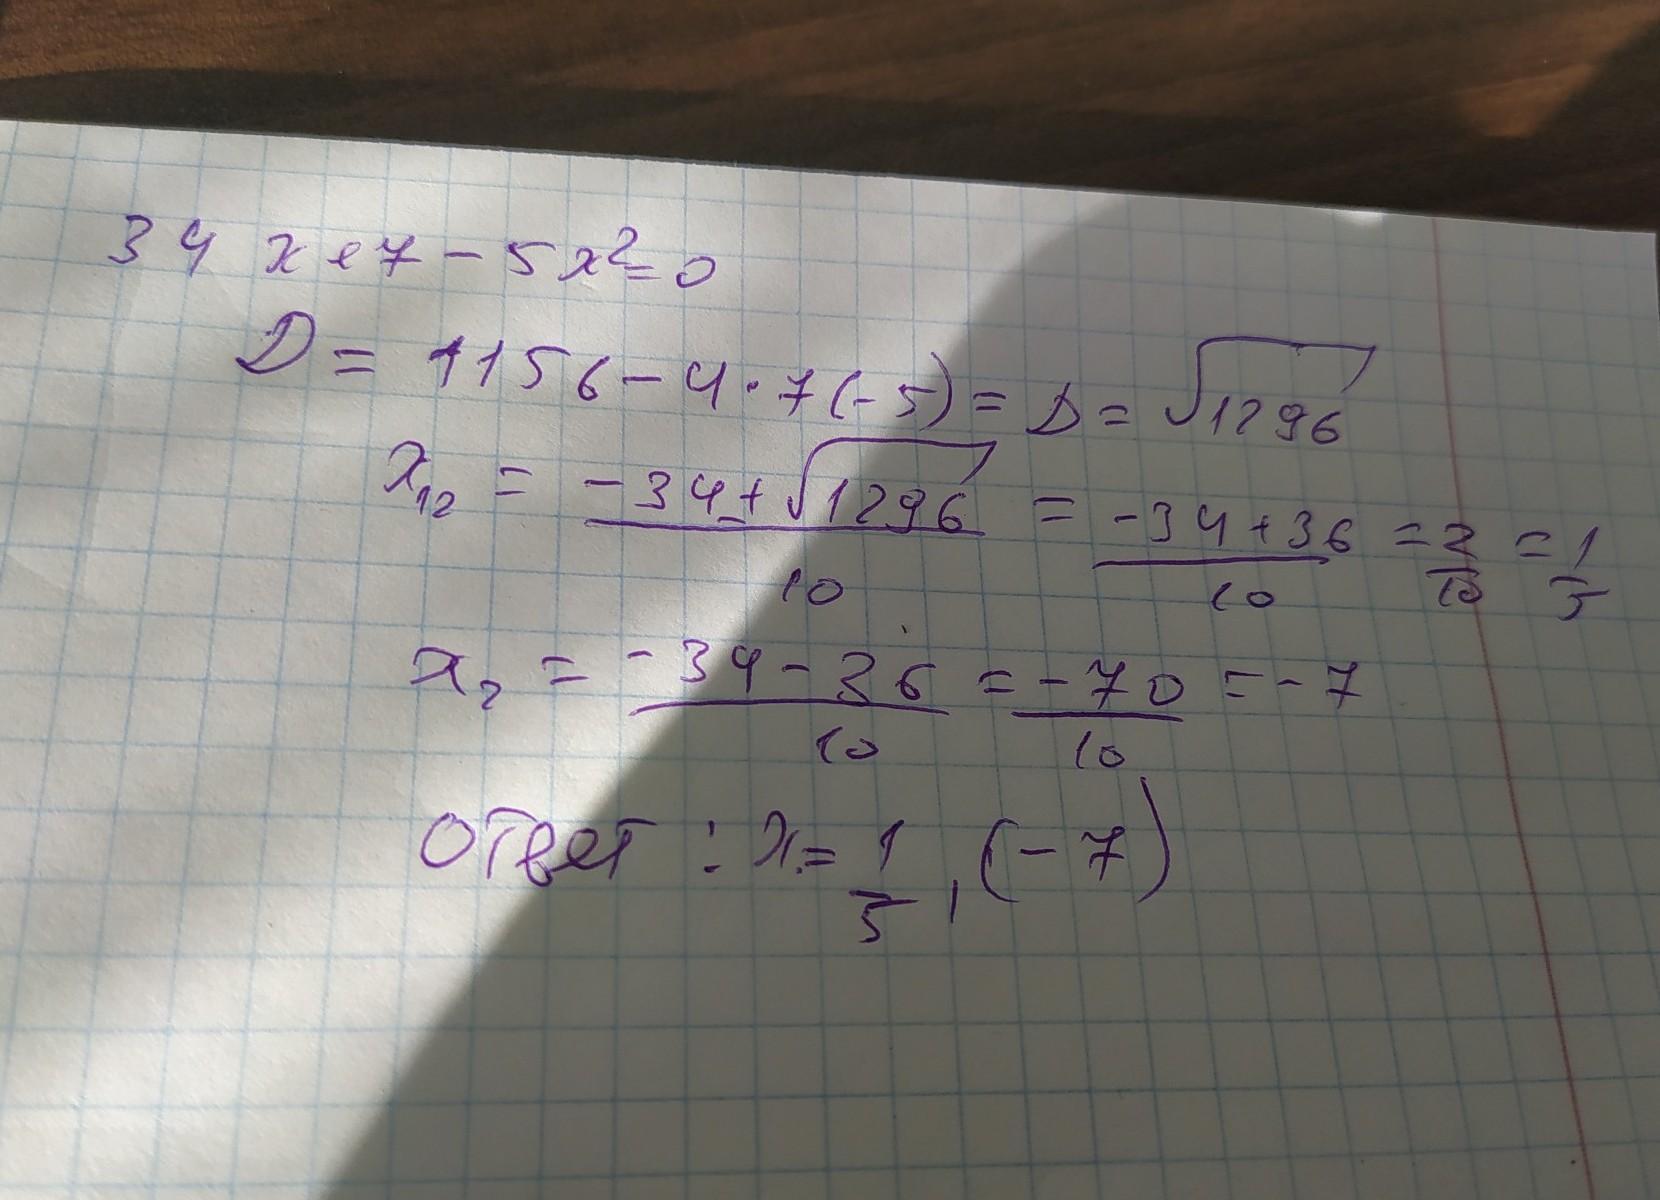 34x+7-5x²=0
D = 1156-4·7(-5) = D = √1296
x₁₂ = (-34±√1296)/10 = (-34+36)/10 = 2/10 = 1/5
x₂ = (-34-36)/10 = -70/10 = -7
Ответ: x = 1/5, (-7)